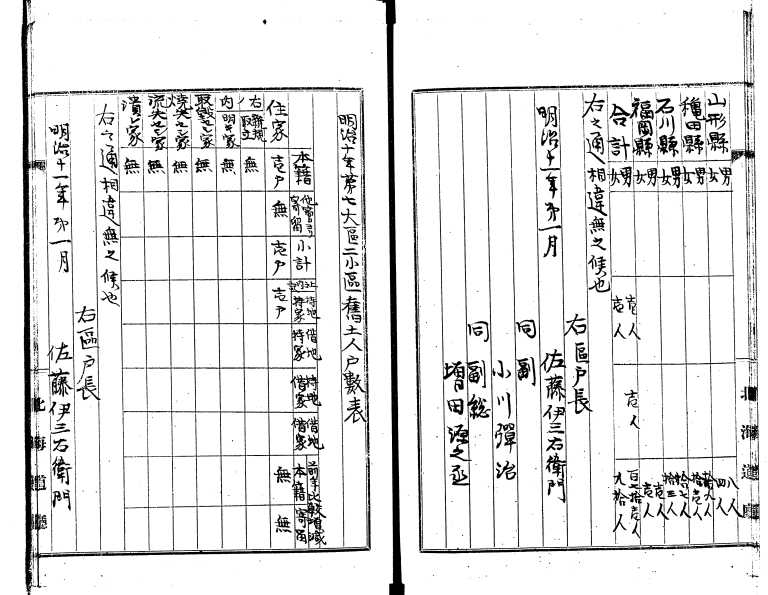 山形縣 男 八人
女 四人
穐田縣 男
女 拾壱人
石川縣 男 拾七人
女 拾三人
福岡縣 男 壱人
女 壱人
合計 男 壱人 壱人 百七拾壱人
女 壱人 九拾人
右之通相違無之候也
明治十一年第一月
右區戸長
佐藤伊三右衛門
同副
小川彈治
同副総
増田源之丞
北海道廳
明治十年第七大區二小區舊土人戸數表
本籍 他寄留 小計 持地持家 借地持家 持地借家 借地借家 前年比較増減 本籍 寄留
住家 壱戸 無 壱戸 壱戸 無 無
右ノ内 新規取立 無
明キ家 無
取毀之家 無
焼失之家 無
流失之家 無
潰之家 無
右之通相違無之候也
明治十一年第一月
右區戸長
佐藤伊三右衛門
北海道廳